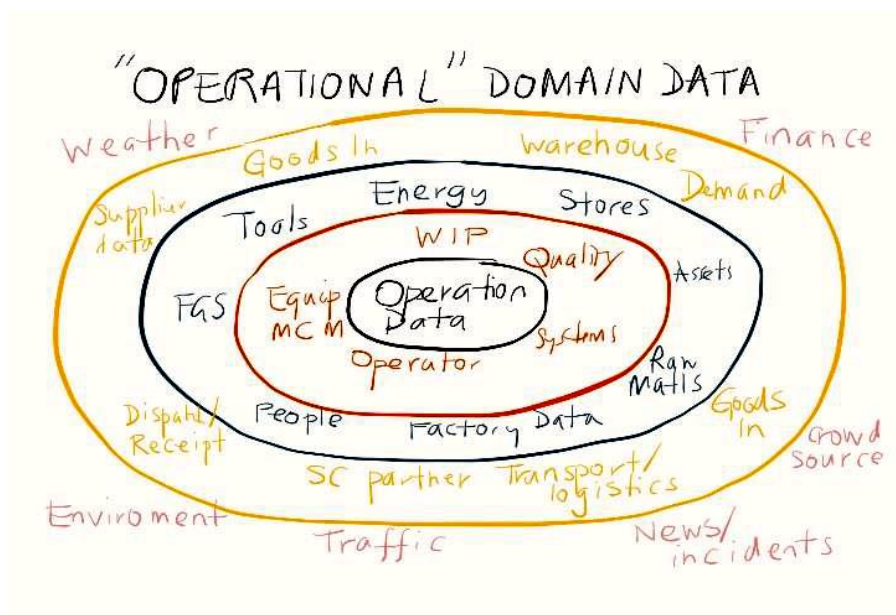 "OPERATIONAL" DOMAIN DATA
Weather
Finance
Goods In
Warehouse
Demand
Supplier
data
Energy
Stores
Tools
WIP
Quality
Assets
FGS
Equip
MCM
Operation
Data
Systems
Operator
Raw
Matls
People
Factory Data
Goods
In
Dispaht/
Receipt
Crowd
Source
SC partner
Transport/
logistics
Enviroment
Traffic
News/
incidents